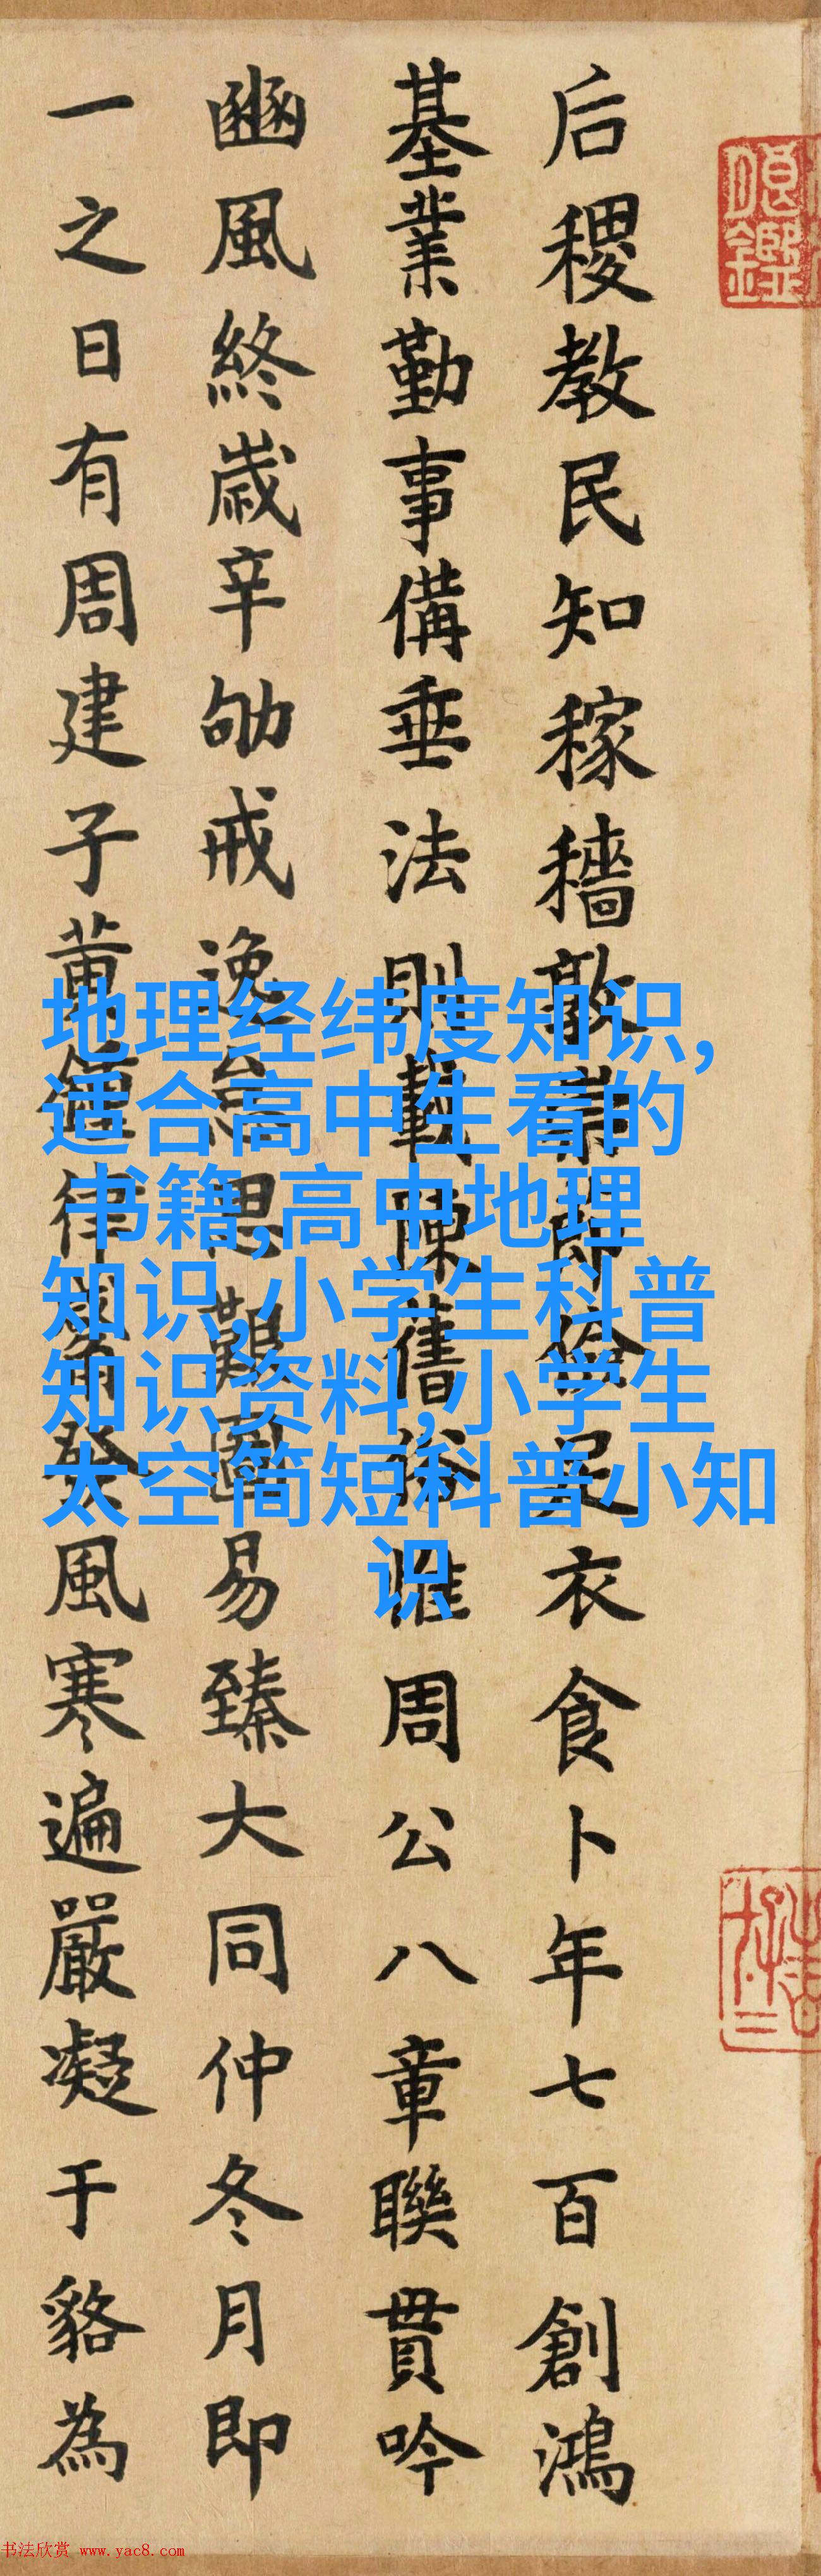 后稷教民知稼穡敦崇節儉足衣食卜年七百創鴻
基業勤事備垂法則載陳舊俗惟周公八章聯貫吟
豳風終歲辛劬戒逸怠思艱圖易臻大同仲冬月即
一之日有周建子黄鍾律觱發風寒遍嚴凝于貉為
地理经纬度知识,
适合高中生看的
书籍,高中地理
知识,小学生科普
知识资料,小学生
太空简短科普小知
识
书法欣赏 www.yac8.com